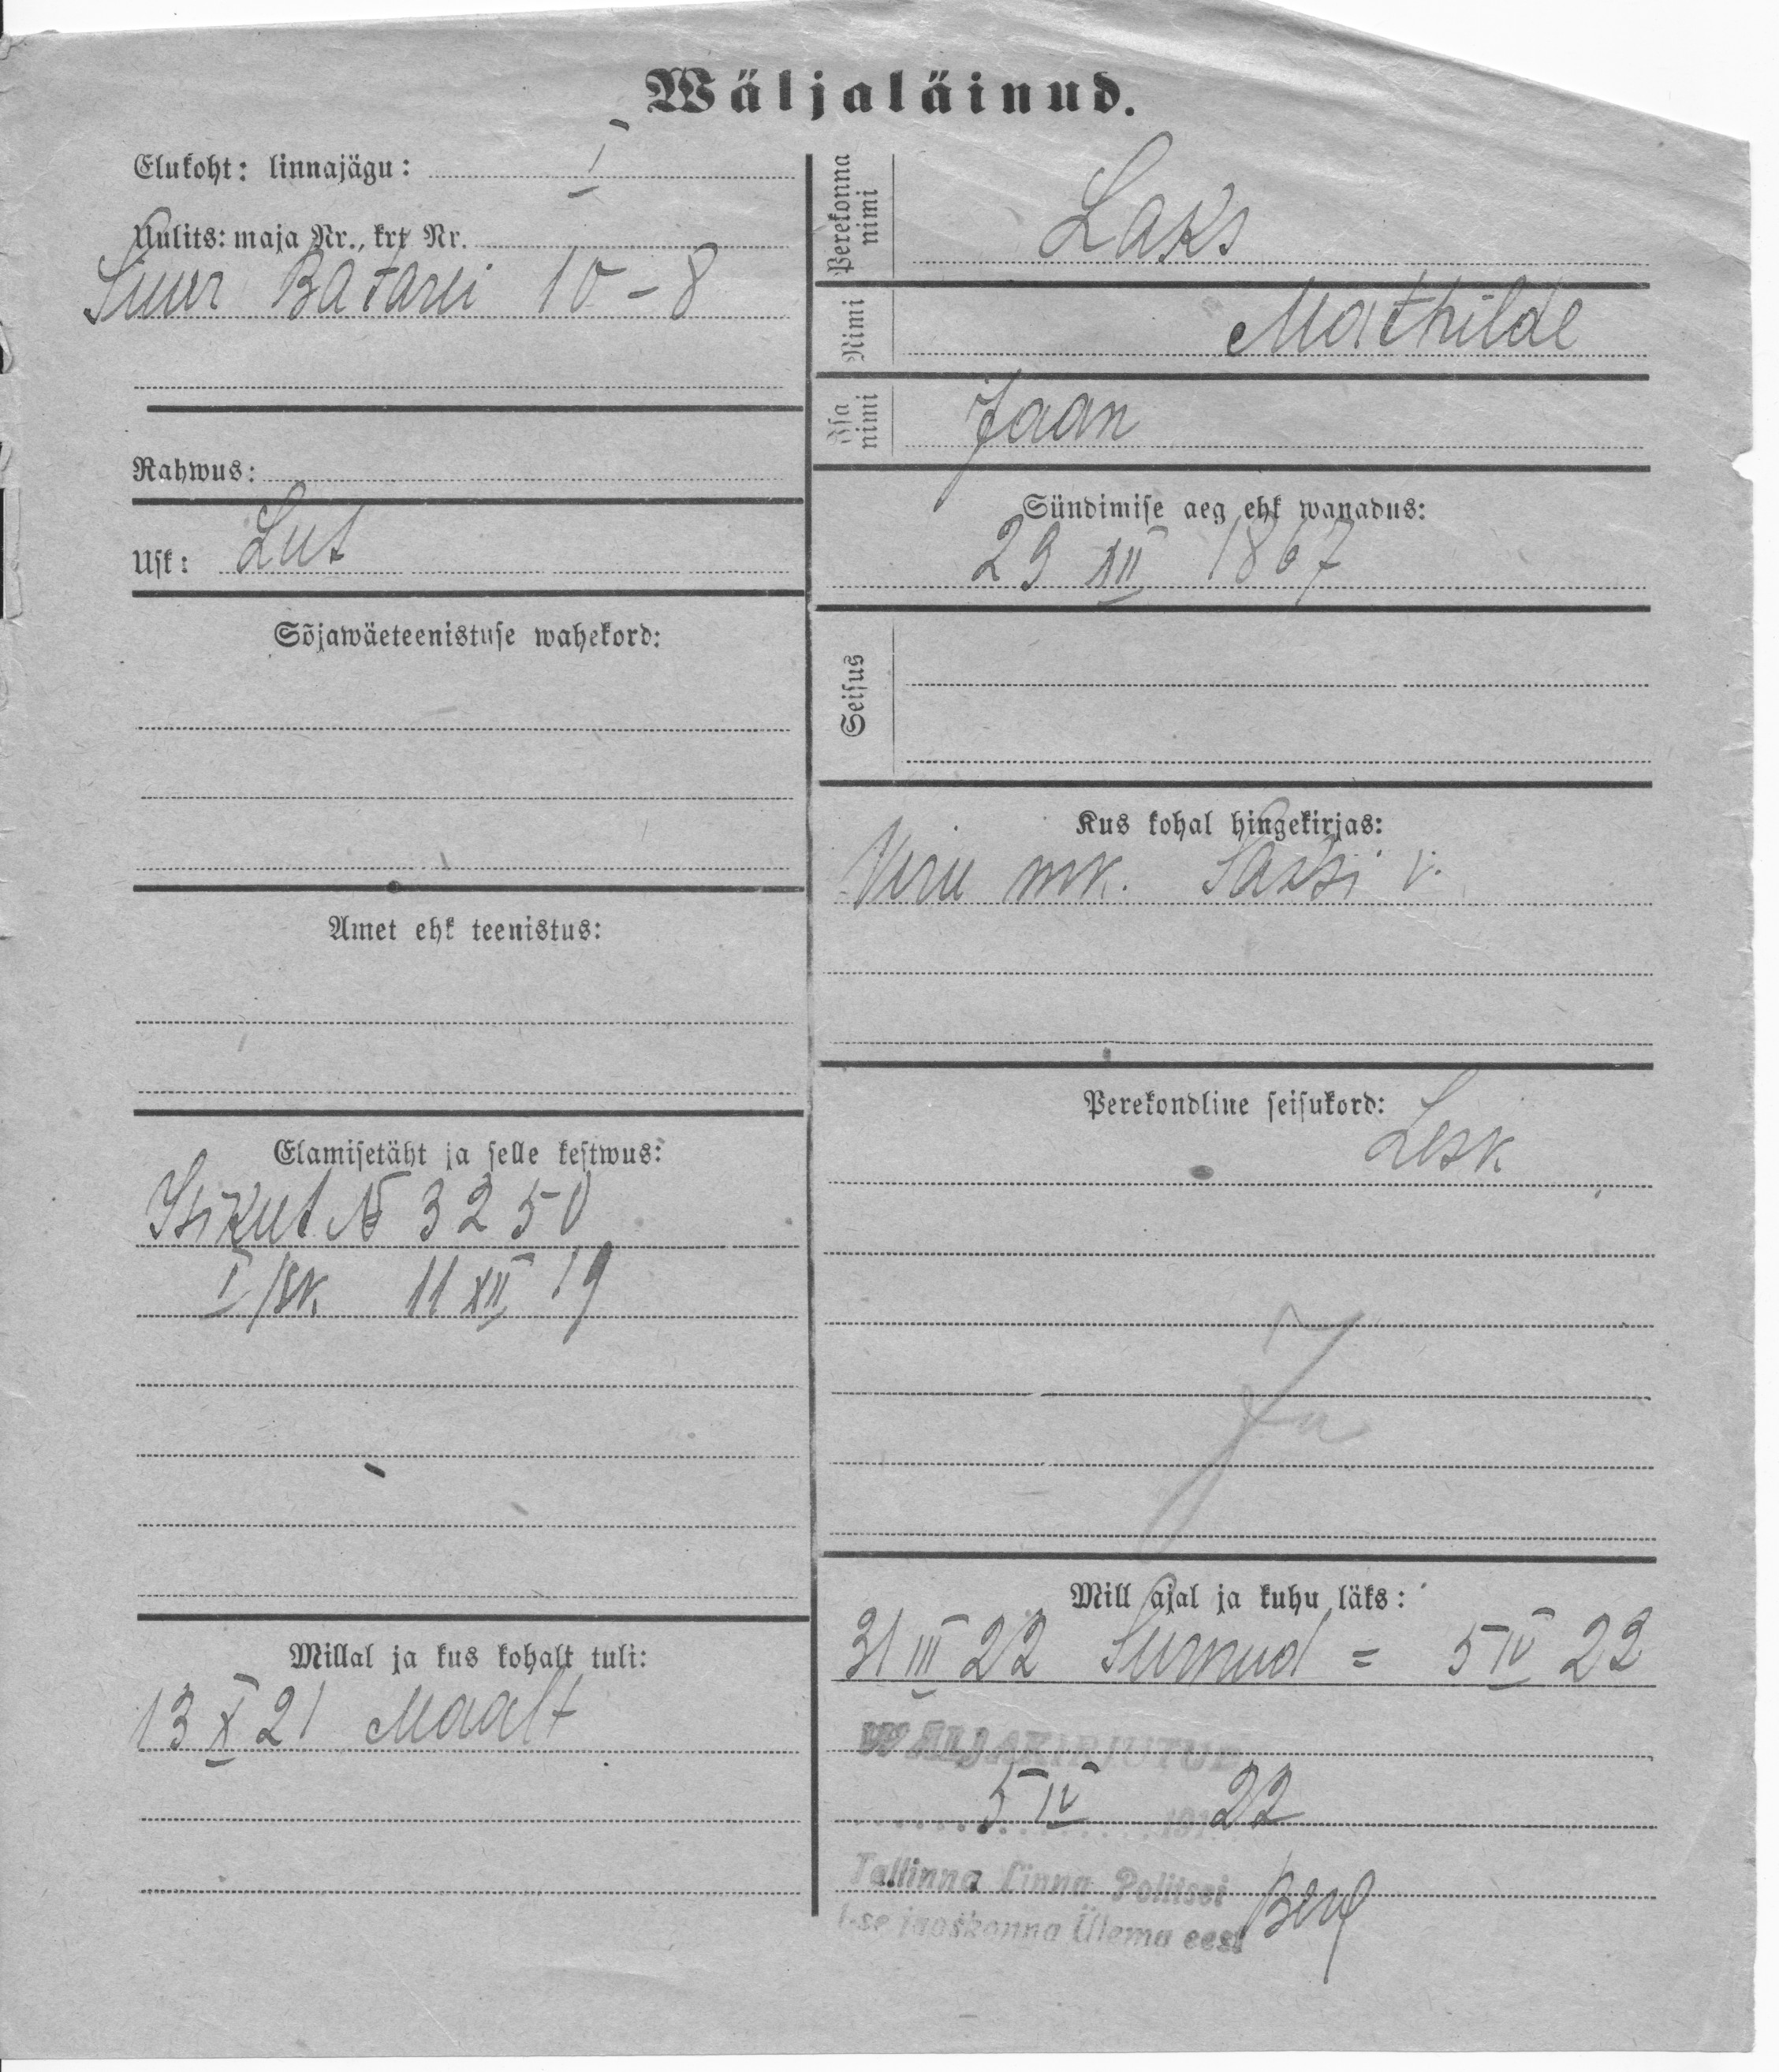 Wäljaläinud.
Elukoht: linnajägu: I
Uulits: maja Nr., krt Nr.
Suur Batarei 10-8
Rahwus:
Usk: Lut
Sõjawäeteenistuse wahekord:
Amet ehk teenistus:
Elamisetäht ja selle kestwus:
Isikut № 3250
I jsk. 11 XII 19
Millal ja kus kohalt tuli:
13 X 21 Maalt
Perekonna nimi Laks
Nimi Mathilde
Isa nimi Jaan
Sündimise aeg ehk wanadus:
29 XII 1867
Seisus
Kus kohal hingekirjas:
Viru mk. Saksi v.
Perekondline seisukord:
Lesk
Mill ajal ja kuhu läks:
31 III 22 Surnud = 5 IV 22
WÄLJAKIRJUTUD
5 IV 191 22
Tallinna Linna Politsei
I-se jaoskonna Ülema eest